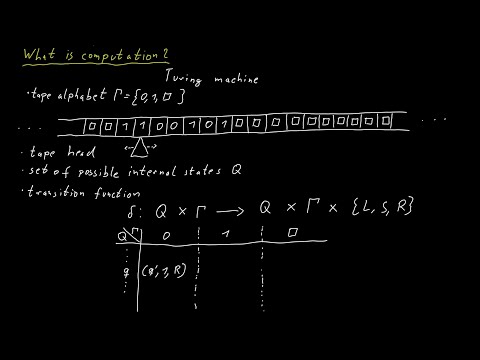 What is computation?
Turing machine
• tape alphabet Γ = {0, 1, □}
... □ □ 1 1 0 0 1 0 1 □ □ □ □ □ □ □ □ □ ...
• tape head
• set of possible internal states Q
• transition function
δ: Q × Γ → Q × Γ × {L, S, R}
Q Γ 0 1 □
q (q', 1, R)